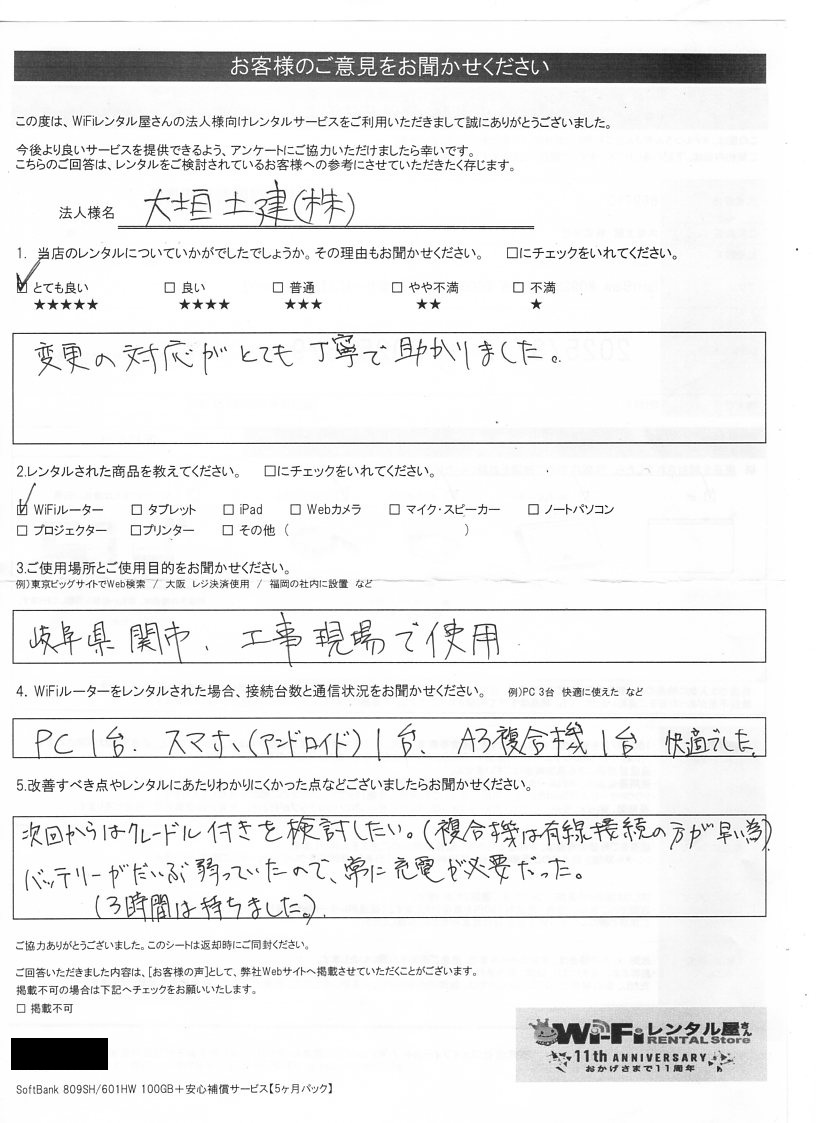 お客様のご意見をお聞かせください
この度は、WiFiレンタル屋さんの法人様向けレンタルサービスをご利用いただきまして誠にありがとうございました。
今後より良いサービスを提供できるよう、アンケートにご協力いただけましたら幸いです。
こちらのご回答は、レンタルをご検討されているお客様への参考にさせていただきたく存じます。
法人様名 大垣土建(株)
1. 当店のレンタルについていかがでしたでしょうか。その理由もお聞かせください。 □にチェックをいれてください。
☑ とても良い □ 良い □ 普通 □ やや不満 □ 不満
★★★★★ ★★★★ ★★★ ★★ ★
変更の対応がとても丁寧で助かりました。
2.レンタルされた商品を教えてください。 □にチェックをいれてください。
☑ WiFiルーター □ タブレット □ iPad □ Webカメラ □ マイク・スピーカー □ ノートパソコン
□ プロジェクター □プリンター □ その他 ( )
3.ご使用場所とご使用目的をお聞かせください。
例)東京ビッグサイトでWeb検索 / 大阪 レジ決済使用 / 福岡の社内に設置 など
岐阜県関市、工事現場で使用
4. WiFiルーターをレンタルされた場合、接続台数と通信状況をお聞かせください。 例)PC 3台 快適に使えた など
PC 1台、スマホ、(アンドロイド)1台、A3複合機1台 快適でした。
5.改善すべき点やレンタルにあたりわかりにくかった点などございましたらお聞かせください。
次回からはクレードル付きを検討したい。(複合機は有線接続の方が早い為)
バッテリーがだいぶ弱っていたので、常に充電が必要だった。
(3時間は持ちました。)
ご協力ありがとうございました。このシートは返却時にご同封ください。
ご回答いただきました内容は、[お客様の声]として、弊社Webサイトへ掲載させていただくことがございます。
掲載不可の場合は下記へチェックをお願いいたします。
□ 掲載不可
Wi-Fiレンタル屋さん
RENTAL Store
11th ANNIVERSARY
おかげさまで11周年
SoftBank 809SH/601HW 100GB+安心補償サービス【5ヶ月パック】